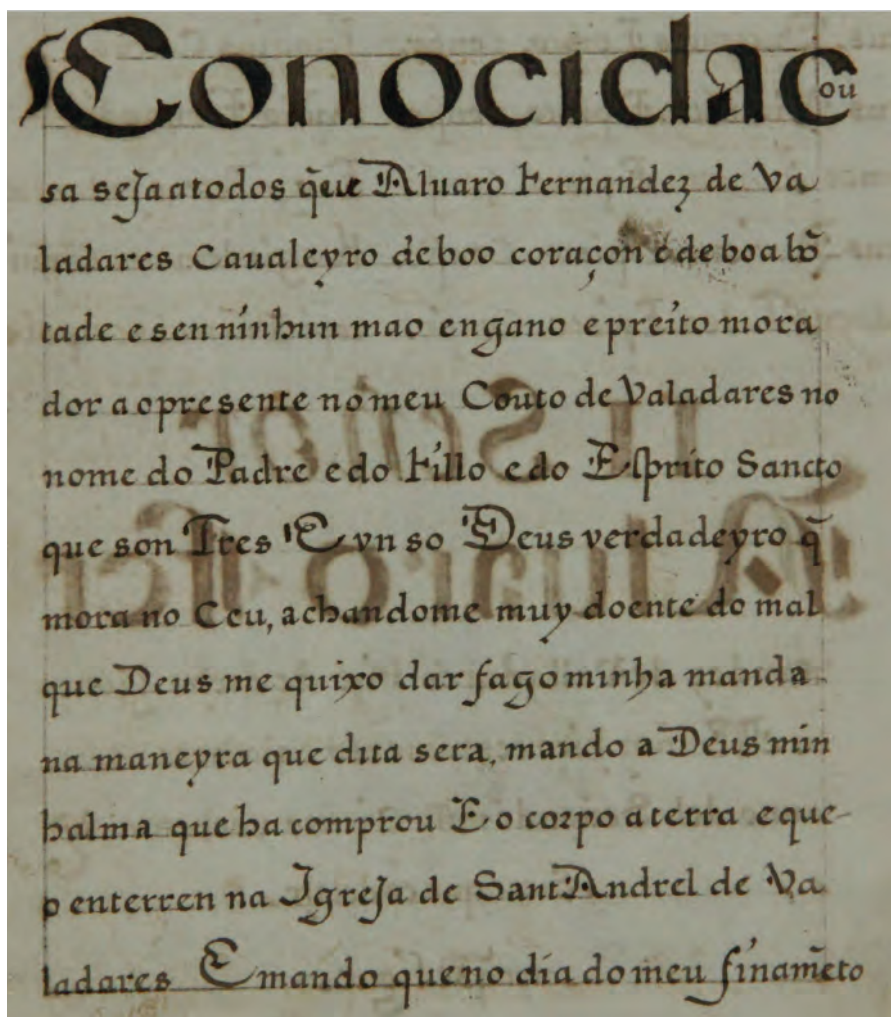 Conocida c
ou
sa seja atodos q̃ue Aluaro Fernandez de Va
ladares Caualeyro de boo coraçon e de boa võ
tade e sen ninhun mao engano e preito mora
dor ao presente no meu Couto de Valadares no
nome do Padre e do Fillo e do Esprito Sancto
que son Tres E vn so Deus verdadeyro q̃
mora no Ceu, achandome muy doente do mal
que Deus me quixo dar fago minha manda
na maneyra que dita sera, mando a Deus min
halma que ha comprou E o corpo a terra e que
o enterren na Igreja de Sant Andrel de Va
ladares E mando que no dia do meu finam̃eto